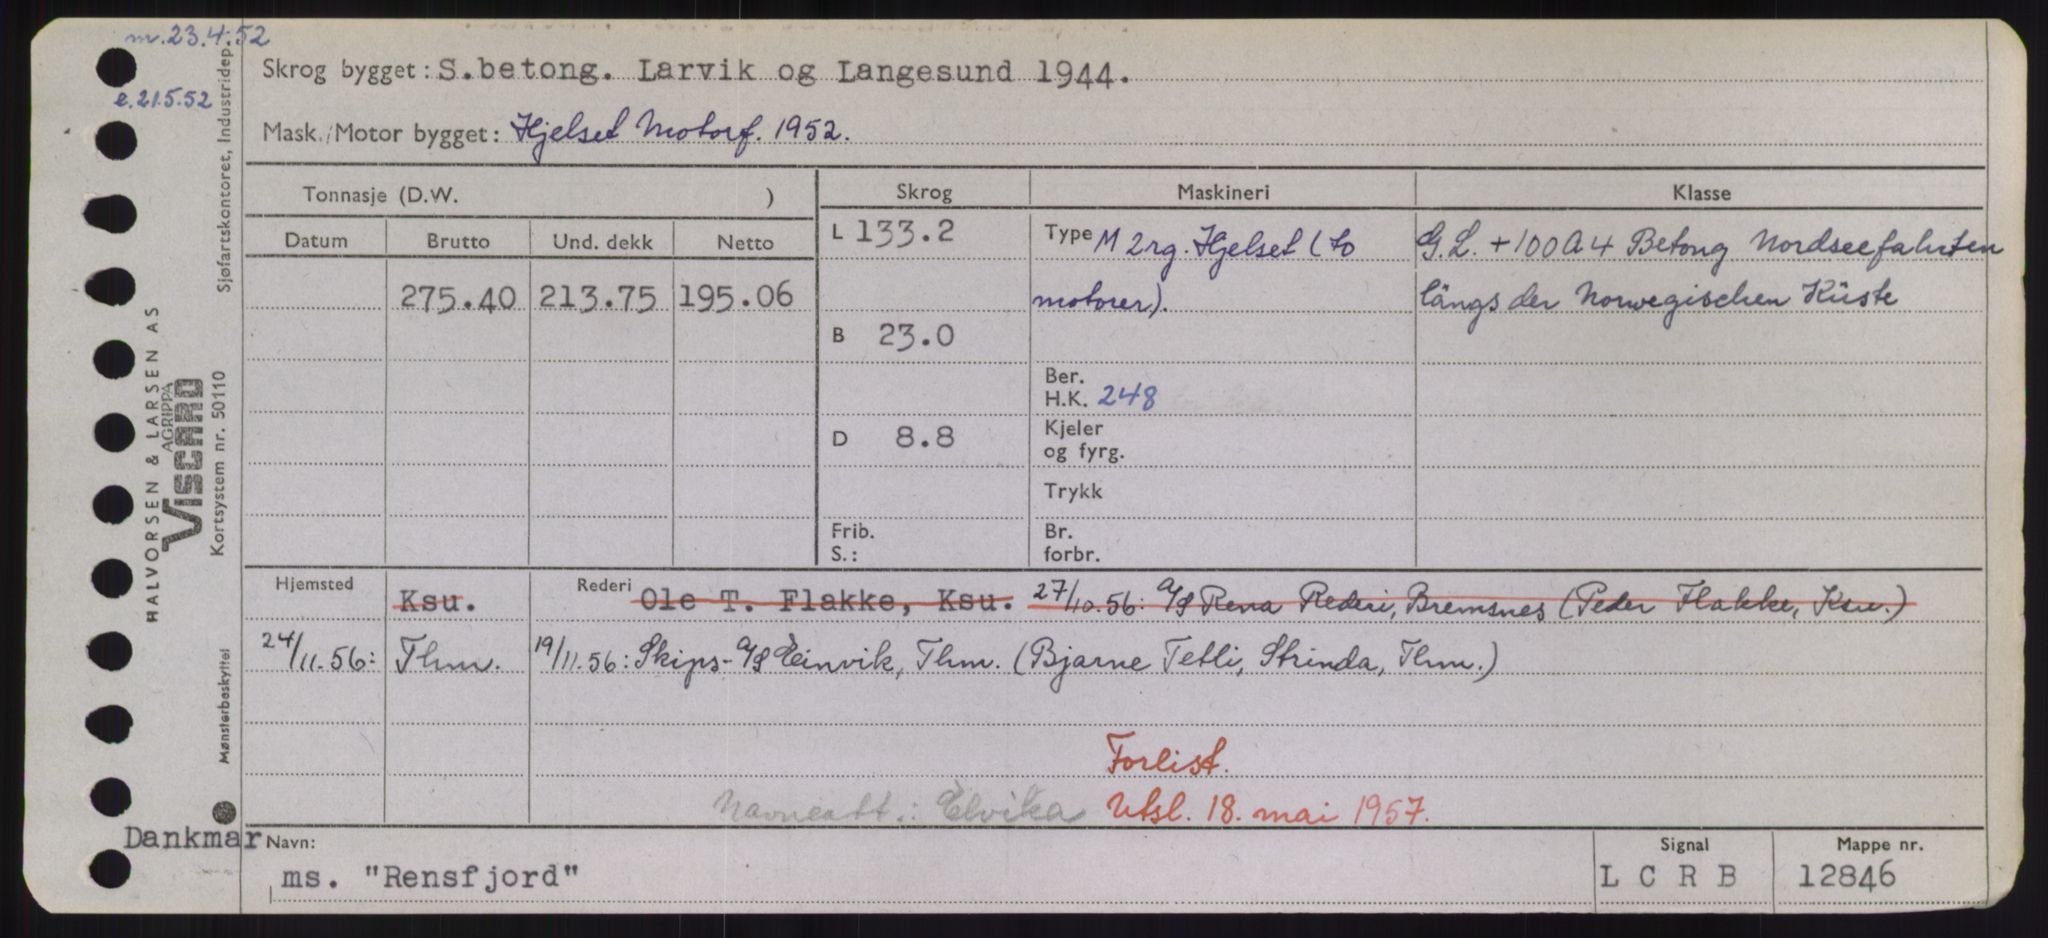 m.23.4.52
e.21.5.52
Skrog bygget: S.betong. Larvik og Langesund 1944.
Mask./Motor bygget: Hjelset Motorf. 1952.
Tonnasje (D.W. )
Skrog
Maskineri
Klasse
Datum
Brutto
Und. dekk
Netto
275.40
213.75
195.06
L 133.2
B 23.0
D 8.8
Frib.
S.:
Type M 2rg. Hjelset (to
motorer).
Ber.
H.K. 248
Kjeler
og fyrg.
Trykk
Br.
forbr.
G.L. +100A4 Betong Nordseefahrten
längs der Norwegischen Küste
Hjemsted Ksu. Rederi Ole T. Flakke, Ksu. 27/10.56: A/S Rena Rederi, Bremsnes (Peder Flakke, Ksu.)
24/11.56: Thm. 19/11.56: Skips-A/S Einvik, Thm. (Bjarne Tetli, Strinda, Thm.)
Forlist.
Navneatt.: Elvika Utsl. 18. mai 1957.
Dankmar
Navn:
ms. "Rensfjord"
Signal
L C R B
Mappe nr.
12846
Sjøfartskontoret, Industridep
HALVORSEN & LARSEN AS
AGRIPPA
VISCARD
Kortsystem nr. 50110
Mønsterbeskyttet